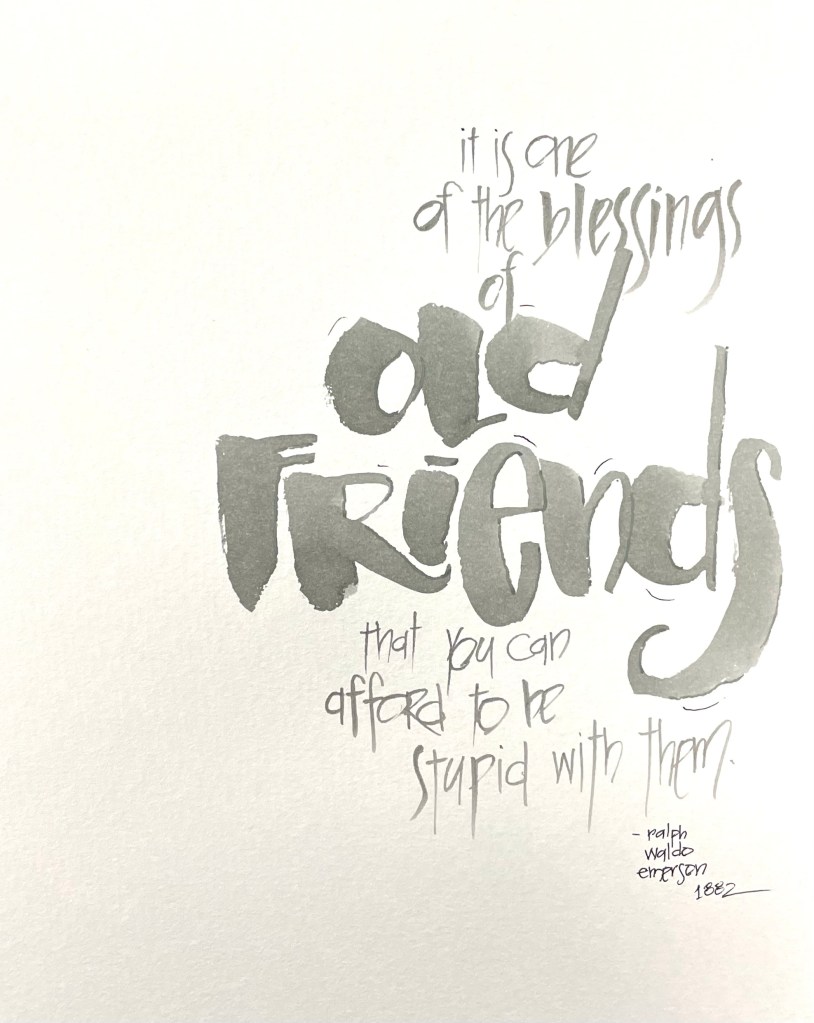 it is one
of the blessings
of
old
Friends
that you can
afford to be
stupid with them.
- ralph
waldo
emerson
1882